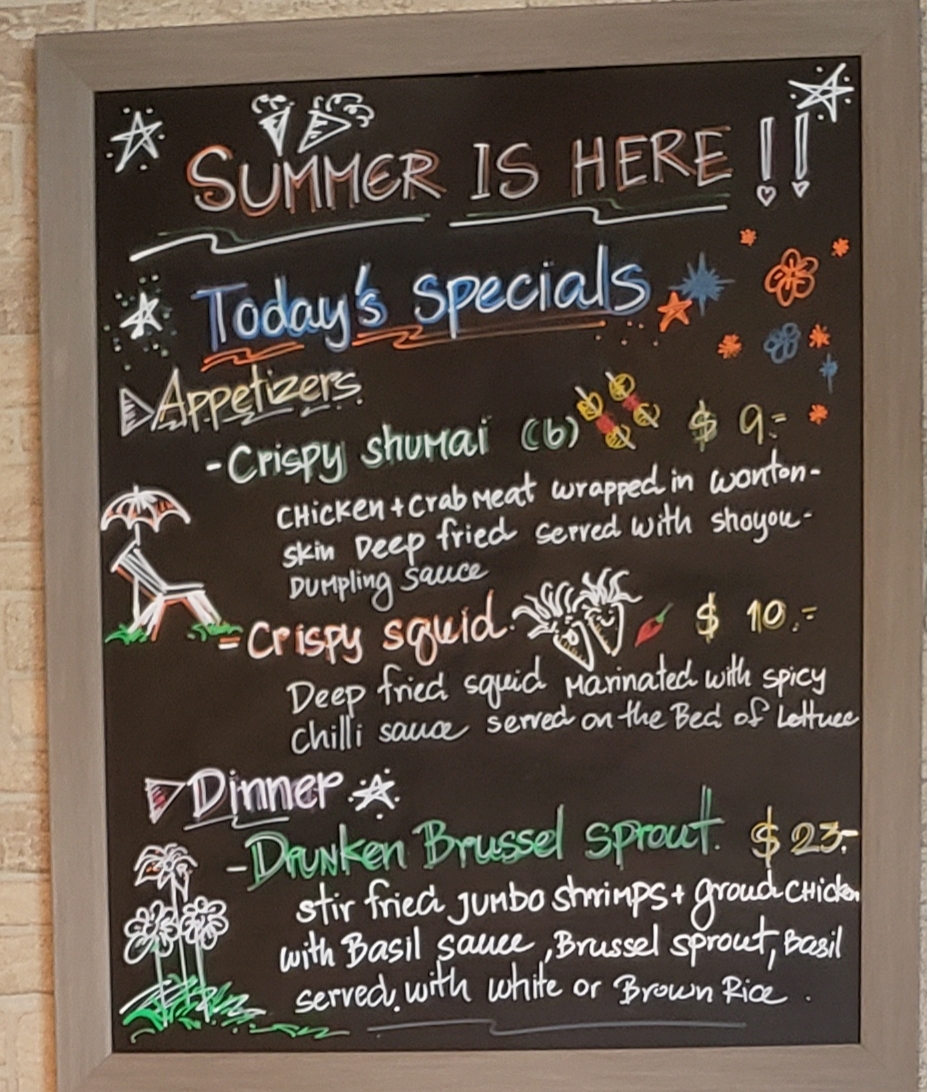 SUMMER IS HERE!!
Today's specials
Appetizers
-Crispy shumai (6) $ 9.-
CHicken + Crab Meat wrapped in wonton-
skin Deep fried served with shoyou-
Dumpling sauce
-Crispy squid. $ 10.-
Deep fried squid Marinated with spicy
Chilli sauce served on the Bed of Lettuce
Dinner
-Drunken Brussel sprout. $ 23.-
stir fried jumbo shrimps + groud CHicken
with Basil sauce, Brussel sprout, Basil
served with white or Brown Rice.